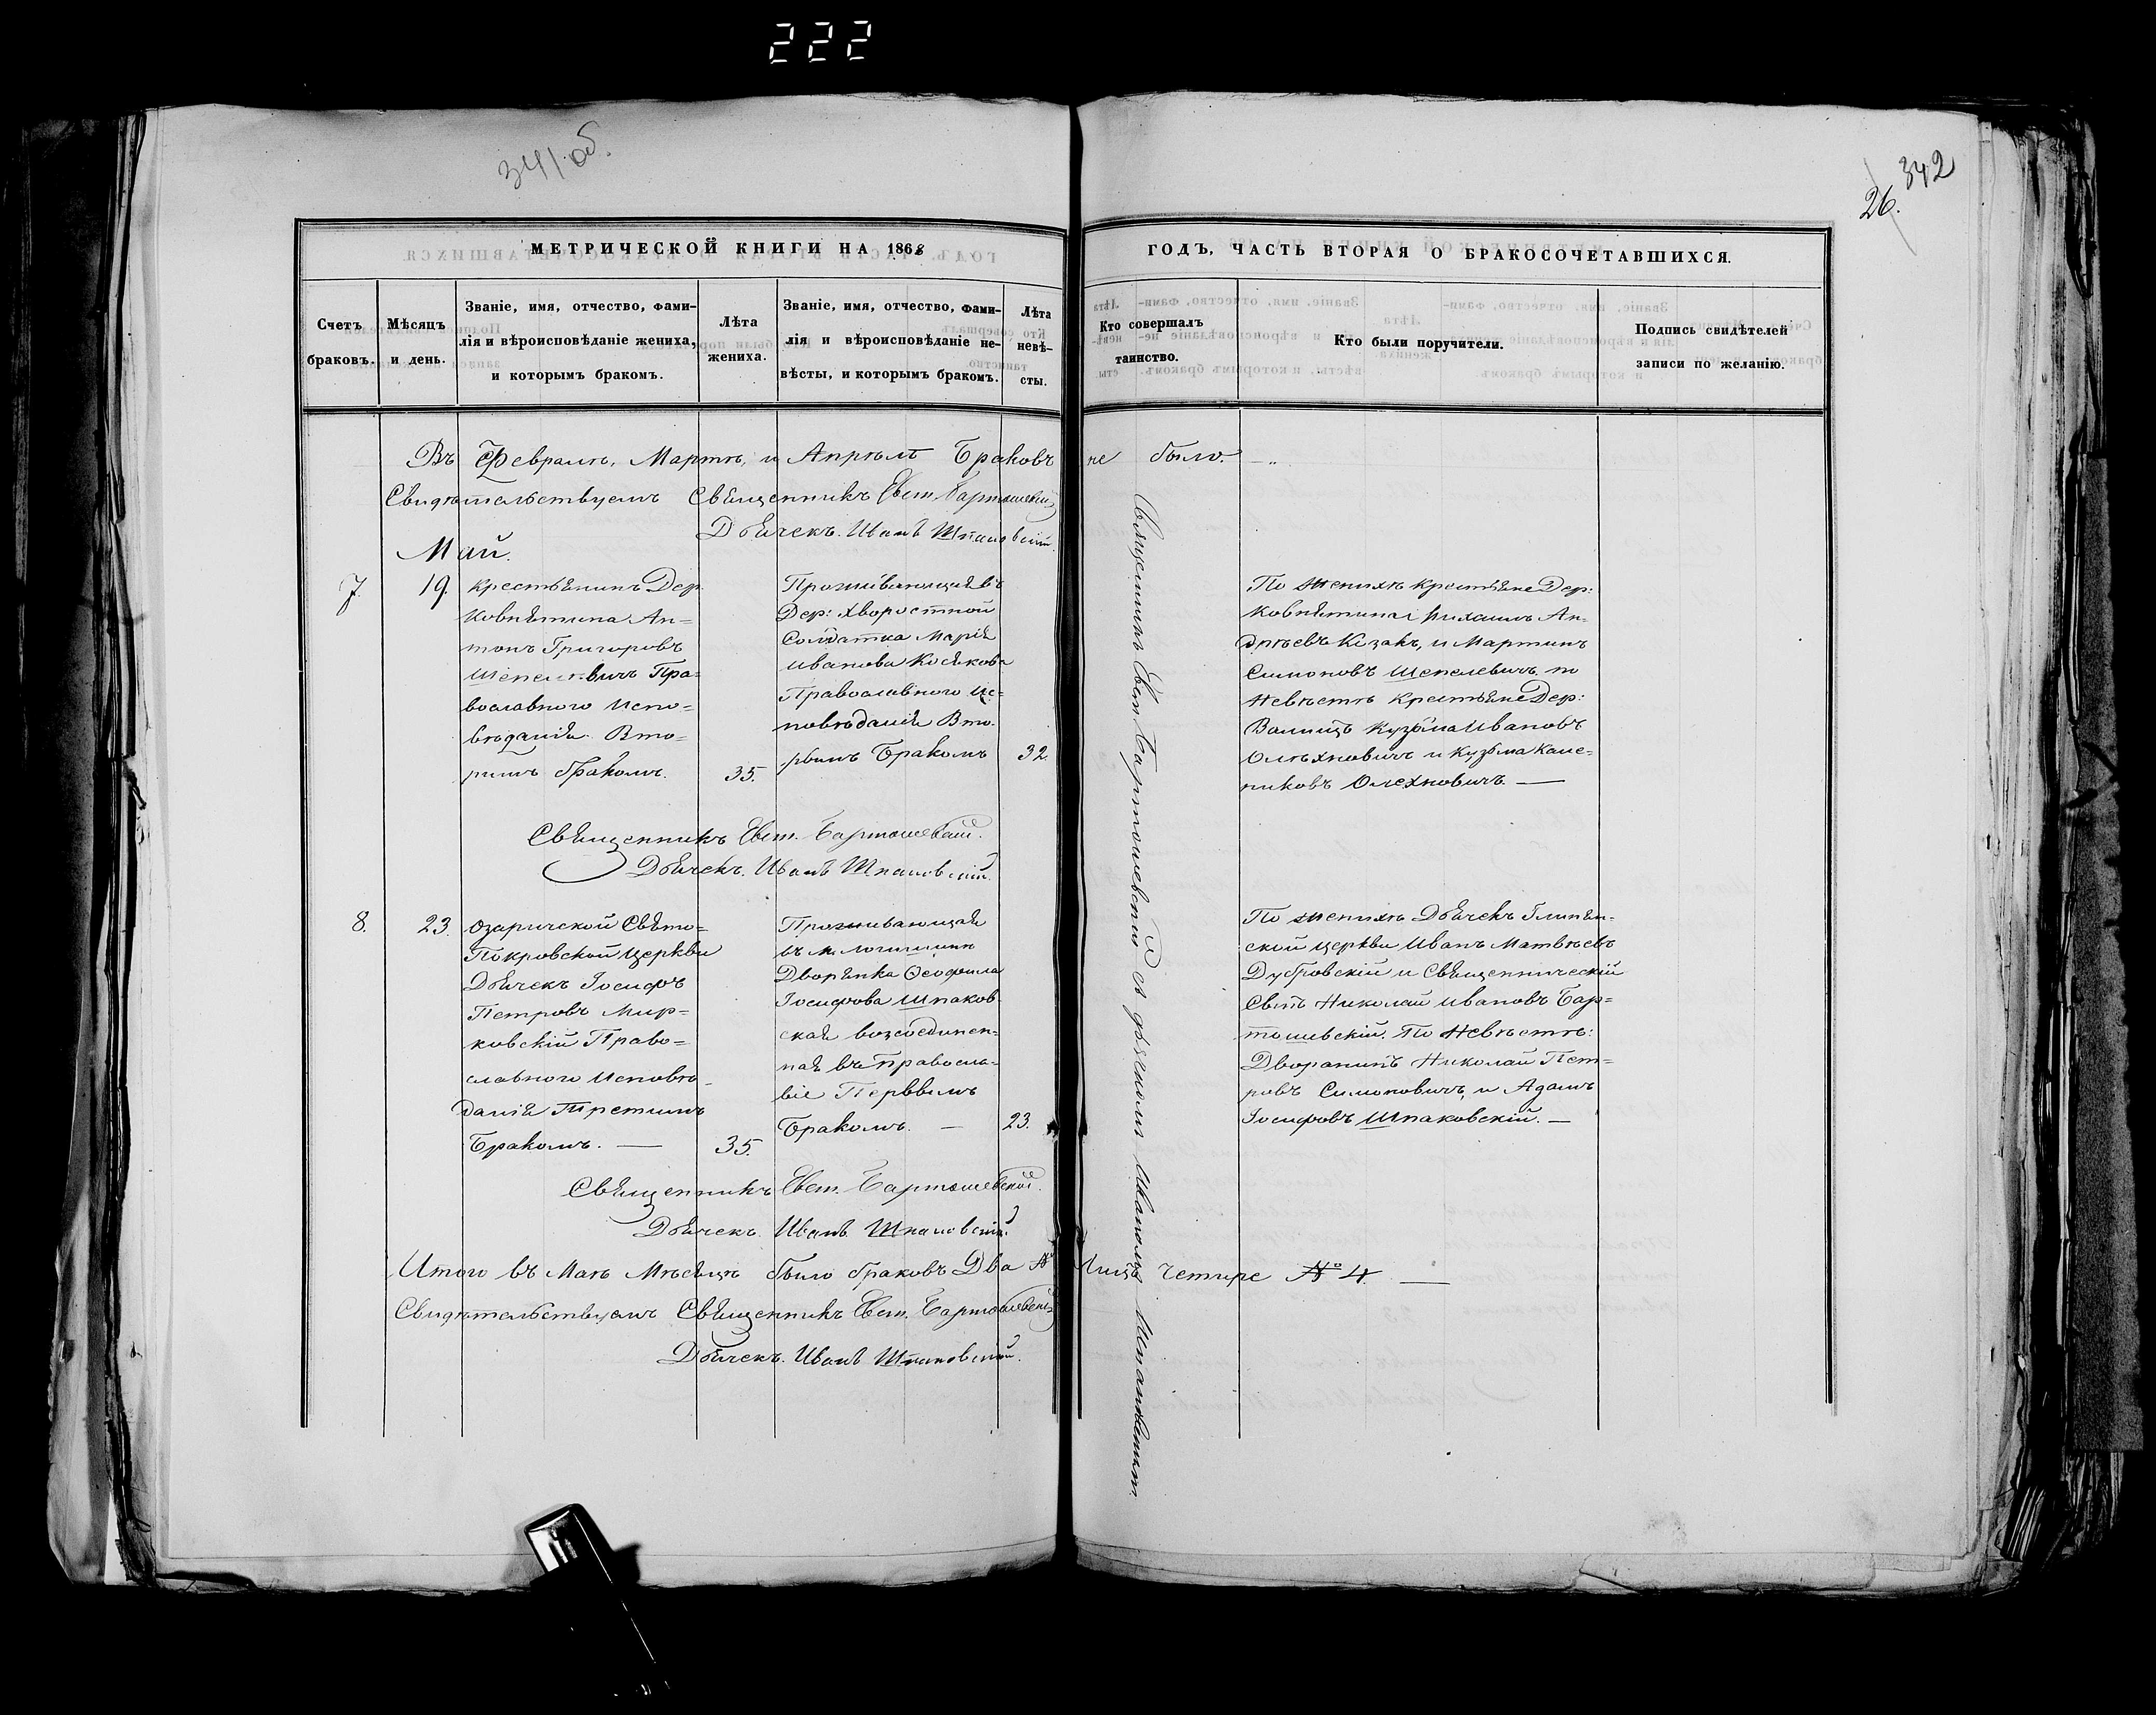 222
341 об.
26. 342
МЕТРИЧЕСКОЙ КНИГИ НА 1868
ГОДЪ, ЧАСТЬ ВТОРАЯ О БРАКОСОЧЕТАВШИХСЯ.
Счетъ браковъ.
Мѣсяцъ и день.
Званіе, имя, отчество, фами-
лія и вѣроисповѣданіе жениха,
и которымъ бракомъ.
Лѣта жениха.
Званіе, имя, отчество, фами-
лія и вѣроисповѣданіе не-
вѣсты, и которымъ бракомъ.
Лѣта невѣ-
сты.
Кто совершалъ
таинство.
Кто были поручители.
Подпись свидѣтелей
записи по желанію.
Въ Февралѣ, Мартѣ, и Апрѣлѣ Браковъ не было.
Свидѣтельствуемъ Священникъ Евст. Бартошевскій
Дьячекъ. Иванъ Шпаковскій.
Май.
7. 19.
Крестьянинъ Дер.
Ковнятина Ан=
тонъ Григоровъ
Шепелевичъ Пра=
вославного Испо=
вѣданія Вто=
римъ бракомъ.
35.
Проживающая въ
Дер: Хворостной
Солдатка Марія
Иванова Козякова
Православного Ис=
повѣданія Вто=
рымъ Бракомъ
32.
По женихѣ Крестьяне Дер:
Ковнятина Михаилъ Ан=
дрѣевъ Козакъ, и Мартинъ
Симоновъ Шепелевичъ по
Невѣстѣ Крестьяне Дер:
Валищъ Кузьма Ивановъ
Олѣхновичъ и Кузьма
Олехновичъ. —
Священникъ Евст. Бартошевскій.
Дьячекъ. Иванъ Шпаковскій.
8. 23.
Озаричской Свято=
Покровской Церкви
Дьячекъ Іосифъ
Петровъ Мир=
ковскій Право=
славного Исповѣ=
данія Третимъ
Бракомъ. —
35.
Проживающая
въ м. Логишинѣ
Дворянка Ѳеофила
Іосифова Шпаков-
ская возсоединен-
ная въ Правосла-
віе Перввымъ
Бракомъ. —
23.
По женихѣ Дьячекъ Глинян-
ской Церкви Иванъ Матвѣевъ
Дубровскій и Священническій
Сынъ Николай Ивановъ Бар=
тошевскій. По Невѣстѣ:
Дворанинъ Николай Пет=
ровъ Симоновичъ, и Адамъ
Іосифовъ Шпаковскій. —
Священникъ Евст. Бартошевскій.
Дьячекъ. Иванъ Шпаковскій.
Итого въ Маѣ Мѣсяцѣ было браковъ Два а лицъ четыре № 4. —
Свидѣтельствуемъ Священникъ Евст. Бартошевскій
Дьячекъ. Иванъ Шпаковскій.
Священникъ Евст. Бартошевскій съ дьячкомъ Иваномъ Шпаковскимъ.